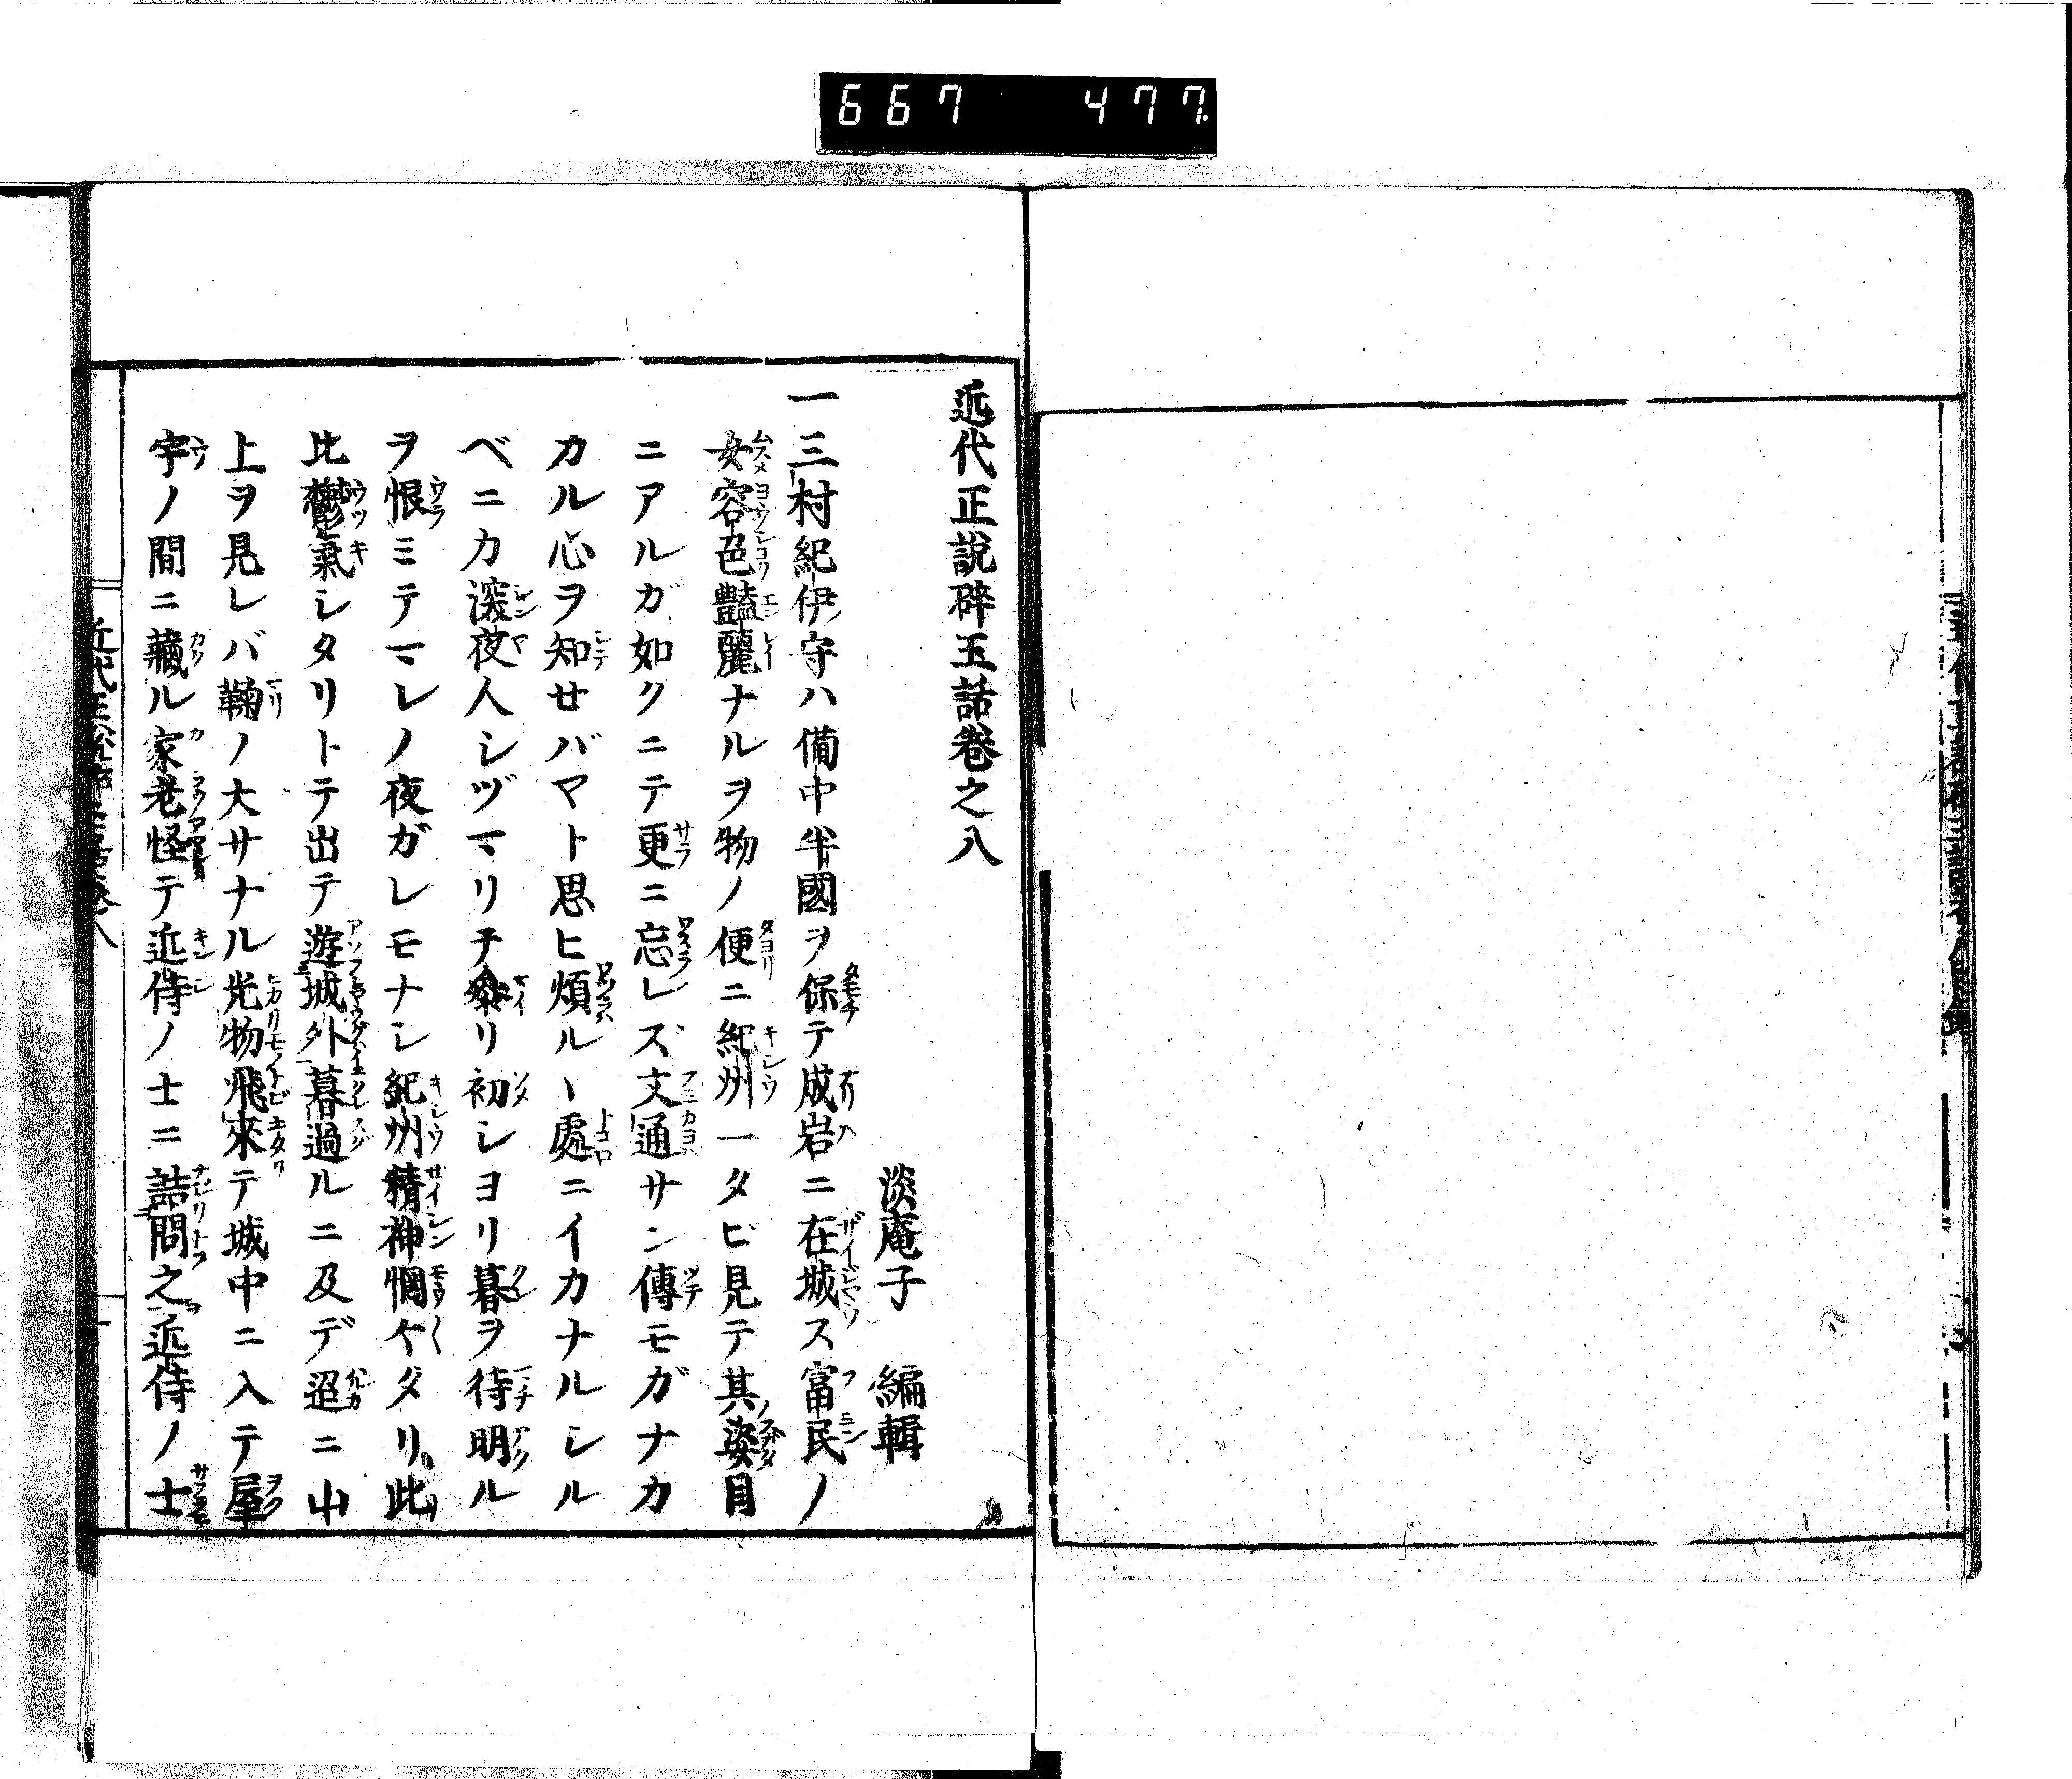 667 477
近代正說碎玉話卷之八
淡庵子 編輯
一三村紀伊守ハ備中半國ヲ保テ成岩ニ在城ス富民ノ
女容色豔麗ナルヲ物ノ便ニ紀州一タビ見テ其姿目
ニアルガ如クニテ更ニ忘レズ文通サン傳モガナカ
カル心ヲ知せバマト思ヒ煩ルヽ處ニイカナルシル
ベニカ深夜人シヅマリテ參リ初シヨリ暮ヲ待明ル
ヲ恨ミテマレノ夜ガレモナシ紀州精神惘々タリ此
比鬱氣シタリトテ出テ遊城外暮過ルニ及デ迢ニ山
上ヲ見レバ鞠ノ大サナル光物飛來テ城中ニ入テ屋
宇ノ間ニ藏ル家老怪テ近侍ノ士ニ詰問之近侍ノ士